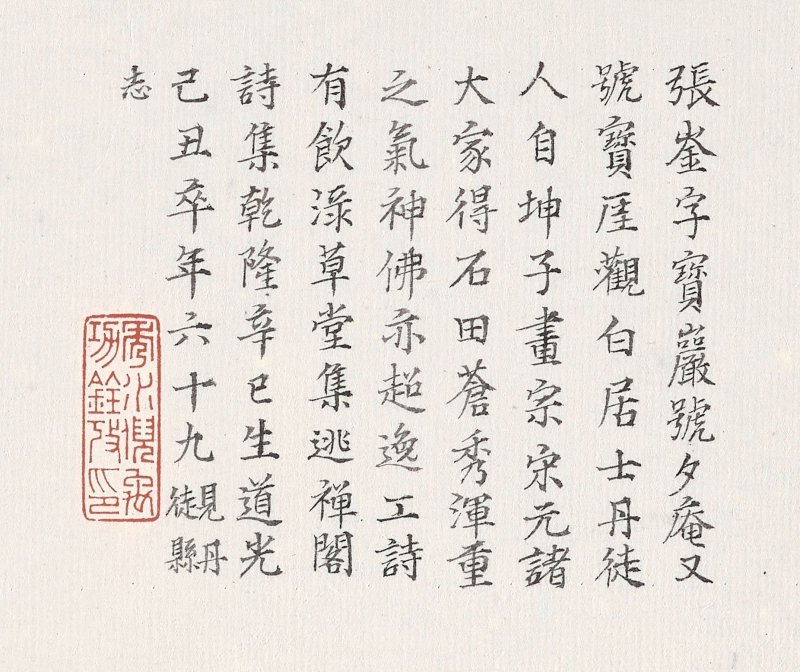 張崟字寶巖號夕庵又
號寶厓觀白居士丹徒
人自坤子畫宗宋元諸
大家得石田蒼秀渾重
之氣神佛亦超逸工詩
有飲淥草堂集逃禪閣
詩集乾隆辛巳生道光
己丑卒年六十九見丹徒縣
志
秀水倪禹
功銓攷印